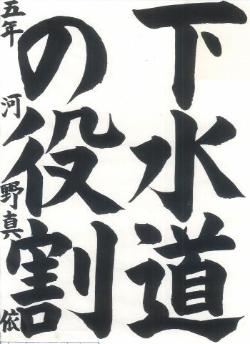 下水道
の役割
五年 河野真依